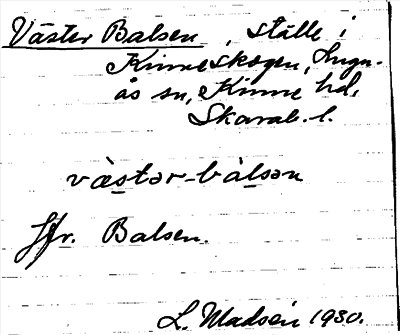 Väster Balsen, ställe i
Kinneskogen, Lugn-
ås sn, Kinne hd,
Skarab. l.
vȁstər-bàlsən
Jfr. Balsen.
L. Madsén 1930.